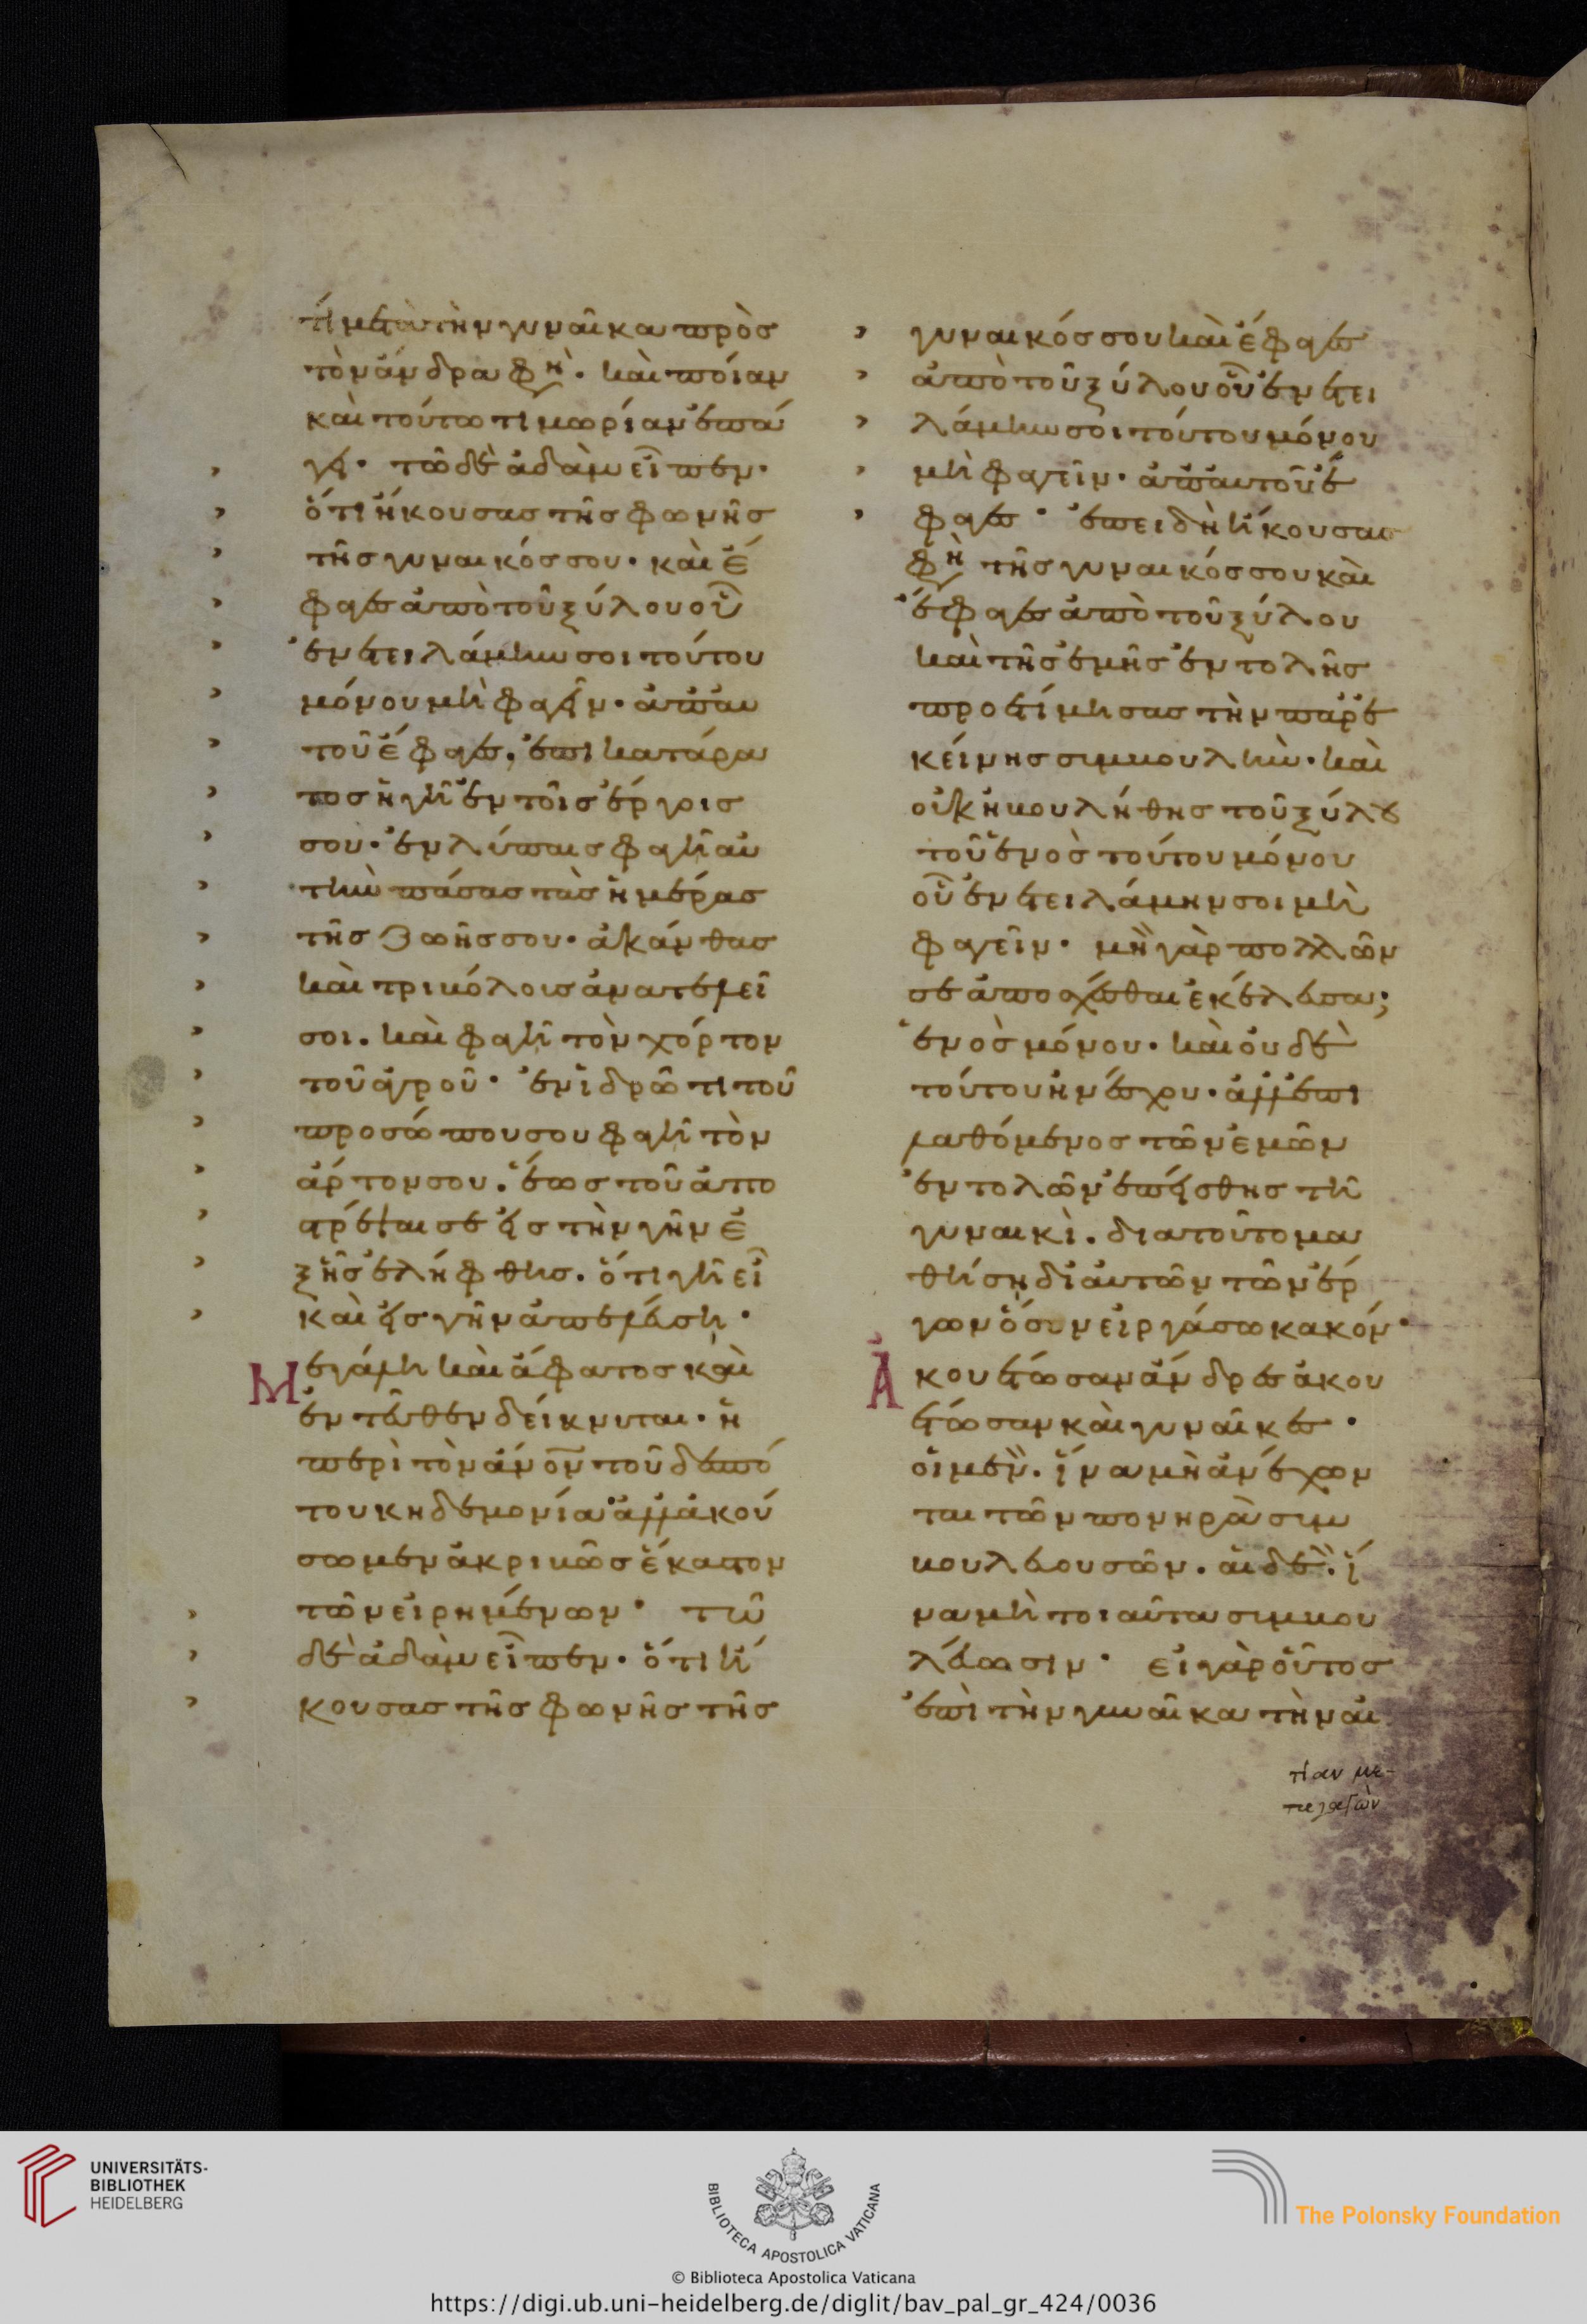 τί μετὰ τὴν γυναῖκα πρὸσ
τὸν ἄνδρα φὴ· καὶ ποίαν
καὶ τούτω τιμωρίαν ἐπά
γει· τῶ δὲ ἀδὰμ εἶπεν·
ὅτι ἤκουσασ τῆσ φωνῆσ
τῆσ γυναικόσ σου· καὶ ἔ
φαγεσ ἀπὸ τοῦ ξύλου οὗ
ἐνετειλάμην σοι τούτου
μόνου μὴ φαγεῖν· ἀπ' αυ
τοῦ ἔφαγεσ. ἐπικατάρα
τοσ ἡ γῆ ἐν τοῖσ ἔργοισ
σου· ἐν λύπαισ φαγῆ αυ
τὴν πάσασ τὰσ ἡμέρασ
τῆσ ζωῆσ σου· ἀκάνθασ
καὶ τριβόλουσ ἀνατελεῖ
σοι. καὶ φαγῆ τὸν χόρτον
τοῦ ἀγροῦ· ἐν ἱδρῶτι τοῦ
προσώπου σου φαγῆ τὸν
ἄρτον σου. ἕωσ τοῦ ἀπο
στρέψαι σε εἰσ τὴν γῆν ἐ
ξ ἧσ ἐλήφθησ. ὅτι γῆ εἶ
καὶ εἰσ γῆν ἀπελεύση·
Μεγάλη καὶ ἄφατοσ καὶ
ἐντεῦθεν δείκνυται· ἡ
περὶ τὸν ἄνον τοῦ δεσπό
του κηδεμονία· ἀλλ' ἀκού
σωμεν ἀκριβῶσ ἕκαστον
τῶν εἰρημένων· τῶ
δὲ ἀδὰμ εἶπεν· ὅτι ἤ
κουσασ τῆσ φωνῆσ τῆσ
γυναικόσ σου καὶ ἔφαγεσ
ἀπὸ τοῦ ξύλου οὗ ἐνετει
λάμην σοι τούτου μόνου
μὴ φαγεῖν· ἀπ' αυτοῦ ἔ
φαγεσ· ἐπειδὴ ἤκουσασ
φὴ τῆσ γυναικόσ σου καὶ
ἔφαγεσ ἀπὸ τοῦ ξύλου
καὶ τῆσ ἐμῆσ ἐντολῆσ
προετίμησασ τὴν παρ' ἐ
κείνησ συμβουλὴν· καὶ
οὐκ ἠβουλήθησ τοῦ ξύλου
τοῦ ἑνὸσ τούτου μόνου
οὗ ἐνετειλάμην σοι μὴ
φαγεῖν· μὴ γὰρ πολλῶν
σε ἀποσχέσθαι ἐκέλευσα;
ἑνὸσ μόνου· καὶ οὐδὲ
τούτου ἠνέσχου· ἀλλ' ἐπι
λαθόμενοσ τῶν ἐμῶν
ἐντολῶν ἐπείσθησ τῆ
γυναικὶ. διατοῦτο μα
θήση δι' αυτῶν τῶν ἔρ
γων ὅσον εἰργάσω κακόν·
Ἀκουέτωσαν ἄνδρεσ ἀκου
έτωσαν καὶ γυναῖκεσ·
οἱ μὲν. ἵνα μὴ ἀνέχων
ται τῶν πονηρὰ συμ
βουλευουσῶν. αἱ δὲ. ἵ
να μὴ τοιαῦτα συμβου
λεύωσιν· εἰ γὰρ οὗτοσ
ἐπὶ τὴν γυναῖκα τὴν αἰ
τίαν με-
ταγαγὼν
UNIVERSITÄTS-
BIBLIOTHEK
HEIDELBERG
BIBLIOTECA APOSTOLICA VATICANA
The Polonsky Foundation
© Biblioteca Apostolica Vaticana
https://digi.ub.uni-heidelberg.de/diglit/bav_pal_gr_424/0036